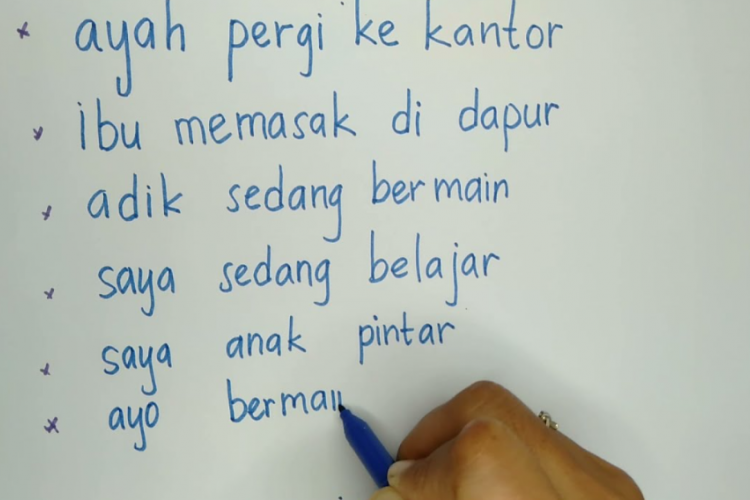 ayah pergi ke kantor
ibu memasak di dapur
adik sedang bermain
saya sedang belajar
saya anak pintar
ayo